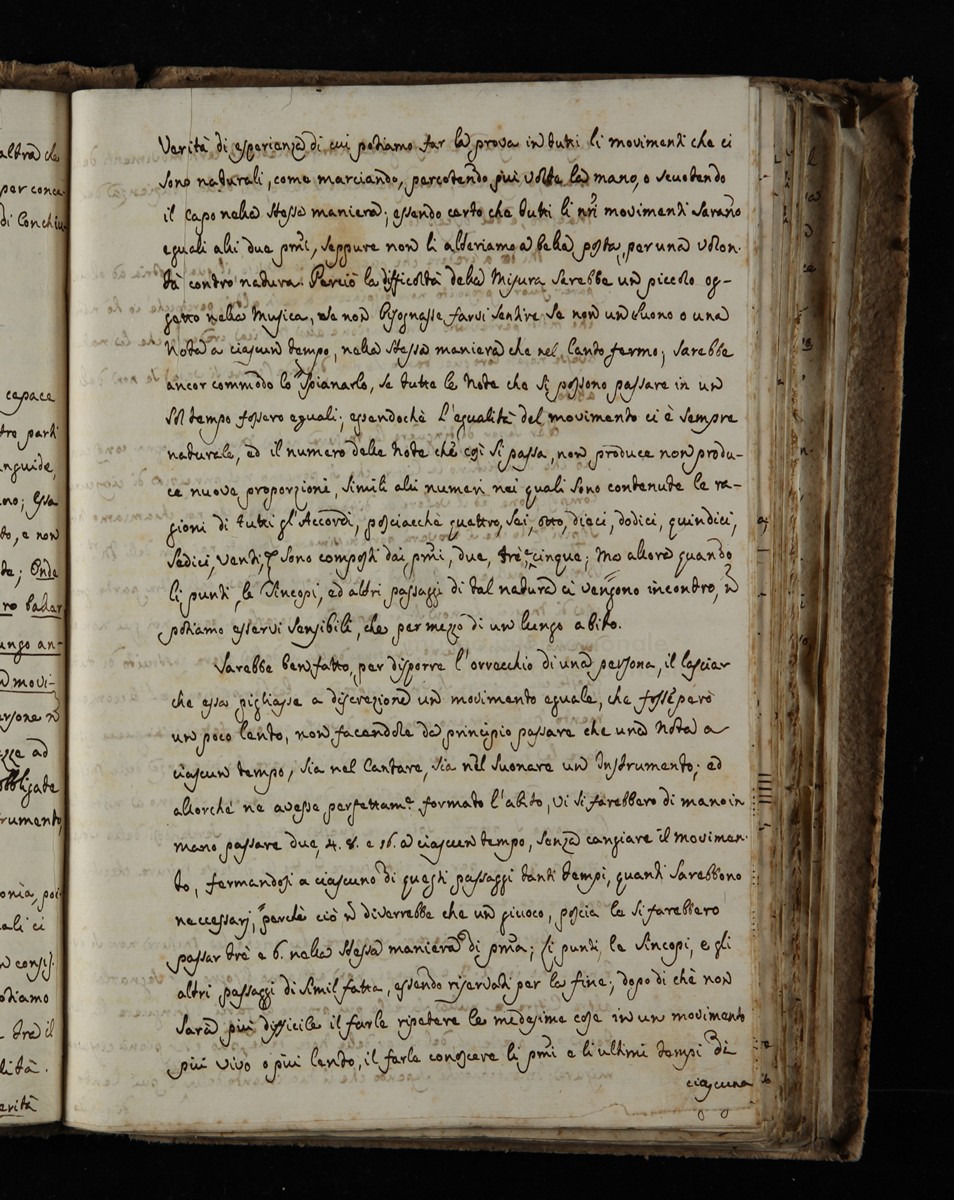 altra che
per conce-
di Conchiu-
capace
tre parti
nguide,
no; essa
to, e non
te; Onde
ro badar
ungo an-
movi-
ersone
ad
obbligate
rumento,
onia, poi
ali ci
consis.
otiamo
tra il
lità.
erità
Verità di esperienza di cui potiamo far la prova in tutti li movimenti che ci
sono naturali, come marciando, percotendo più volte la mano, o scuotendo
il Capo nella stessa maniera; essendo certo che tutti li nri movimenti saranno
eguali alli due pmi, seppure non li alteriamo a bella posta, per una volon-
tà contro natura. Perciò la difficoltà della Misura sarebbe un piccolo og-
getto nella Musica, se non bisognasse farsi sentire se non un suono o una
Nota a ciascun tempo, nella stessa maniera che nel Canto fermo; sarebbe
ancor commodo lo spianarlo, se tutte le Note che si possono passare in un
sol tempo fossero eguali; essendochè l'egualità del movimento ci è sempre
naturale, ed il numero delle Note che così si passa, non produce non produ-
ce nuove proporzioni, simili alli numeri nei quali sono contenute le ra-
gioni di tutti gl'Accordi, posciacchè quattro, sei, otto, dieci, dodici, quindici,
sedici, venti, sono composti dai pmi, due, tre, cinque; Ma allora quando
li punti, le Sincopi, ed altri passaggi di tal natura ci vengono incontro, ñ
potiamo esservi sensibili, che per mezzo di un lungo abito.
Sarebbe ben fatto, per disporre l'orrecchio di una persona, il lasciar
che essa pigliasse a discrezione un movimento eguale, che fosse però
un poco lento, non facendole da principio passare che una Nota a
ciascun tempo, sia nel Cantare, sia nel suonare un Instrumento; ed
allorchè ne avesse perfettamte formato l'abito, vi si farebbero di mano in
mano passare due, 4. 8. e 16. a ciascun tempo, senza cangiare il movimen-
to, fermandosi a ciascuno di questi passaggi tanti tempi, quanti sarebbono
neccessarj, perchè ciò ñ diverrebbe che un giuoco, poscia le si farebbero
passar trè e 6. nella stessa maniera di pma; li punti, le Sincopi, e gli
altri passaggi di simil fatta, essendo riservati per la fine; dopo di chè non
sarà più difficile il farle ripetere le medesime cose in un movimento
più vivo o più lento, il farle conoscere li pmi e li ultimi tempi di
ciascuna